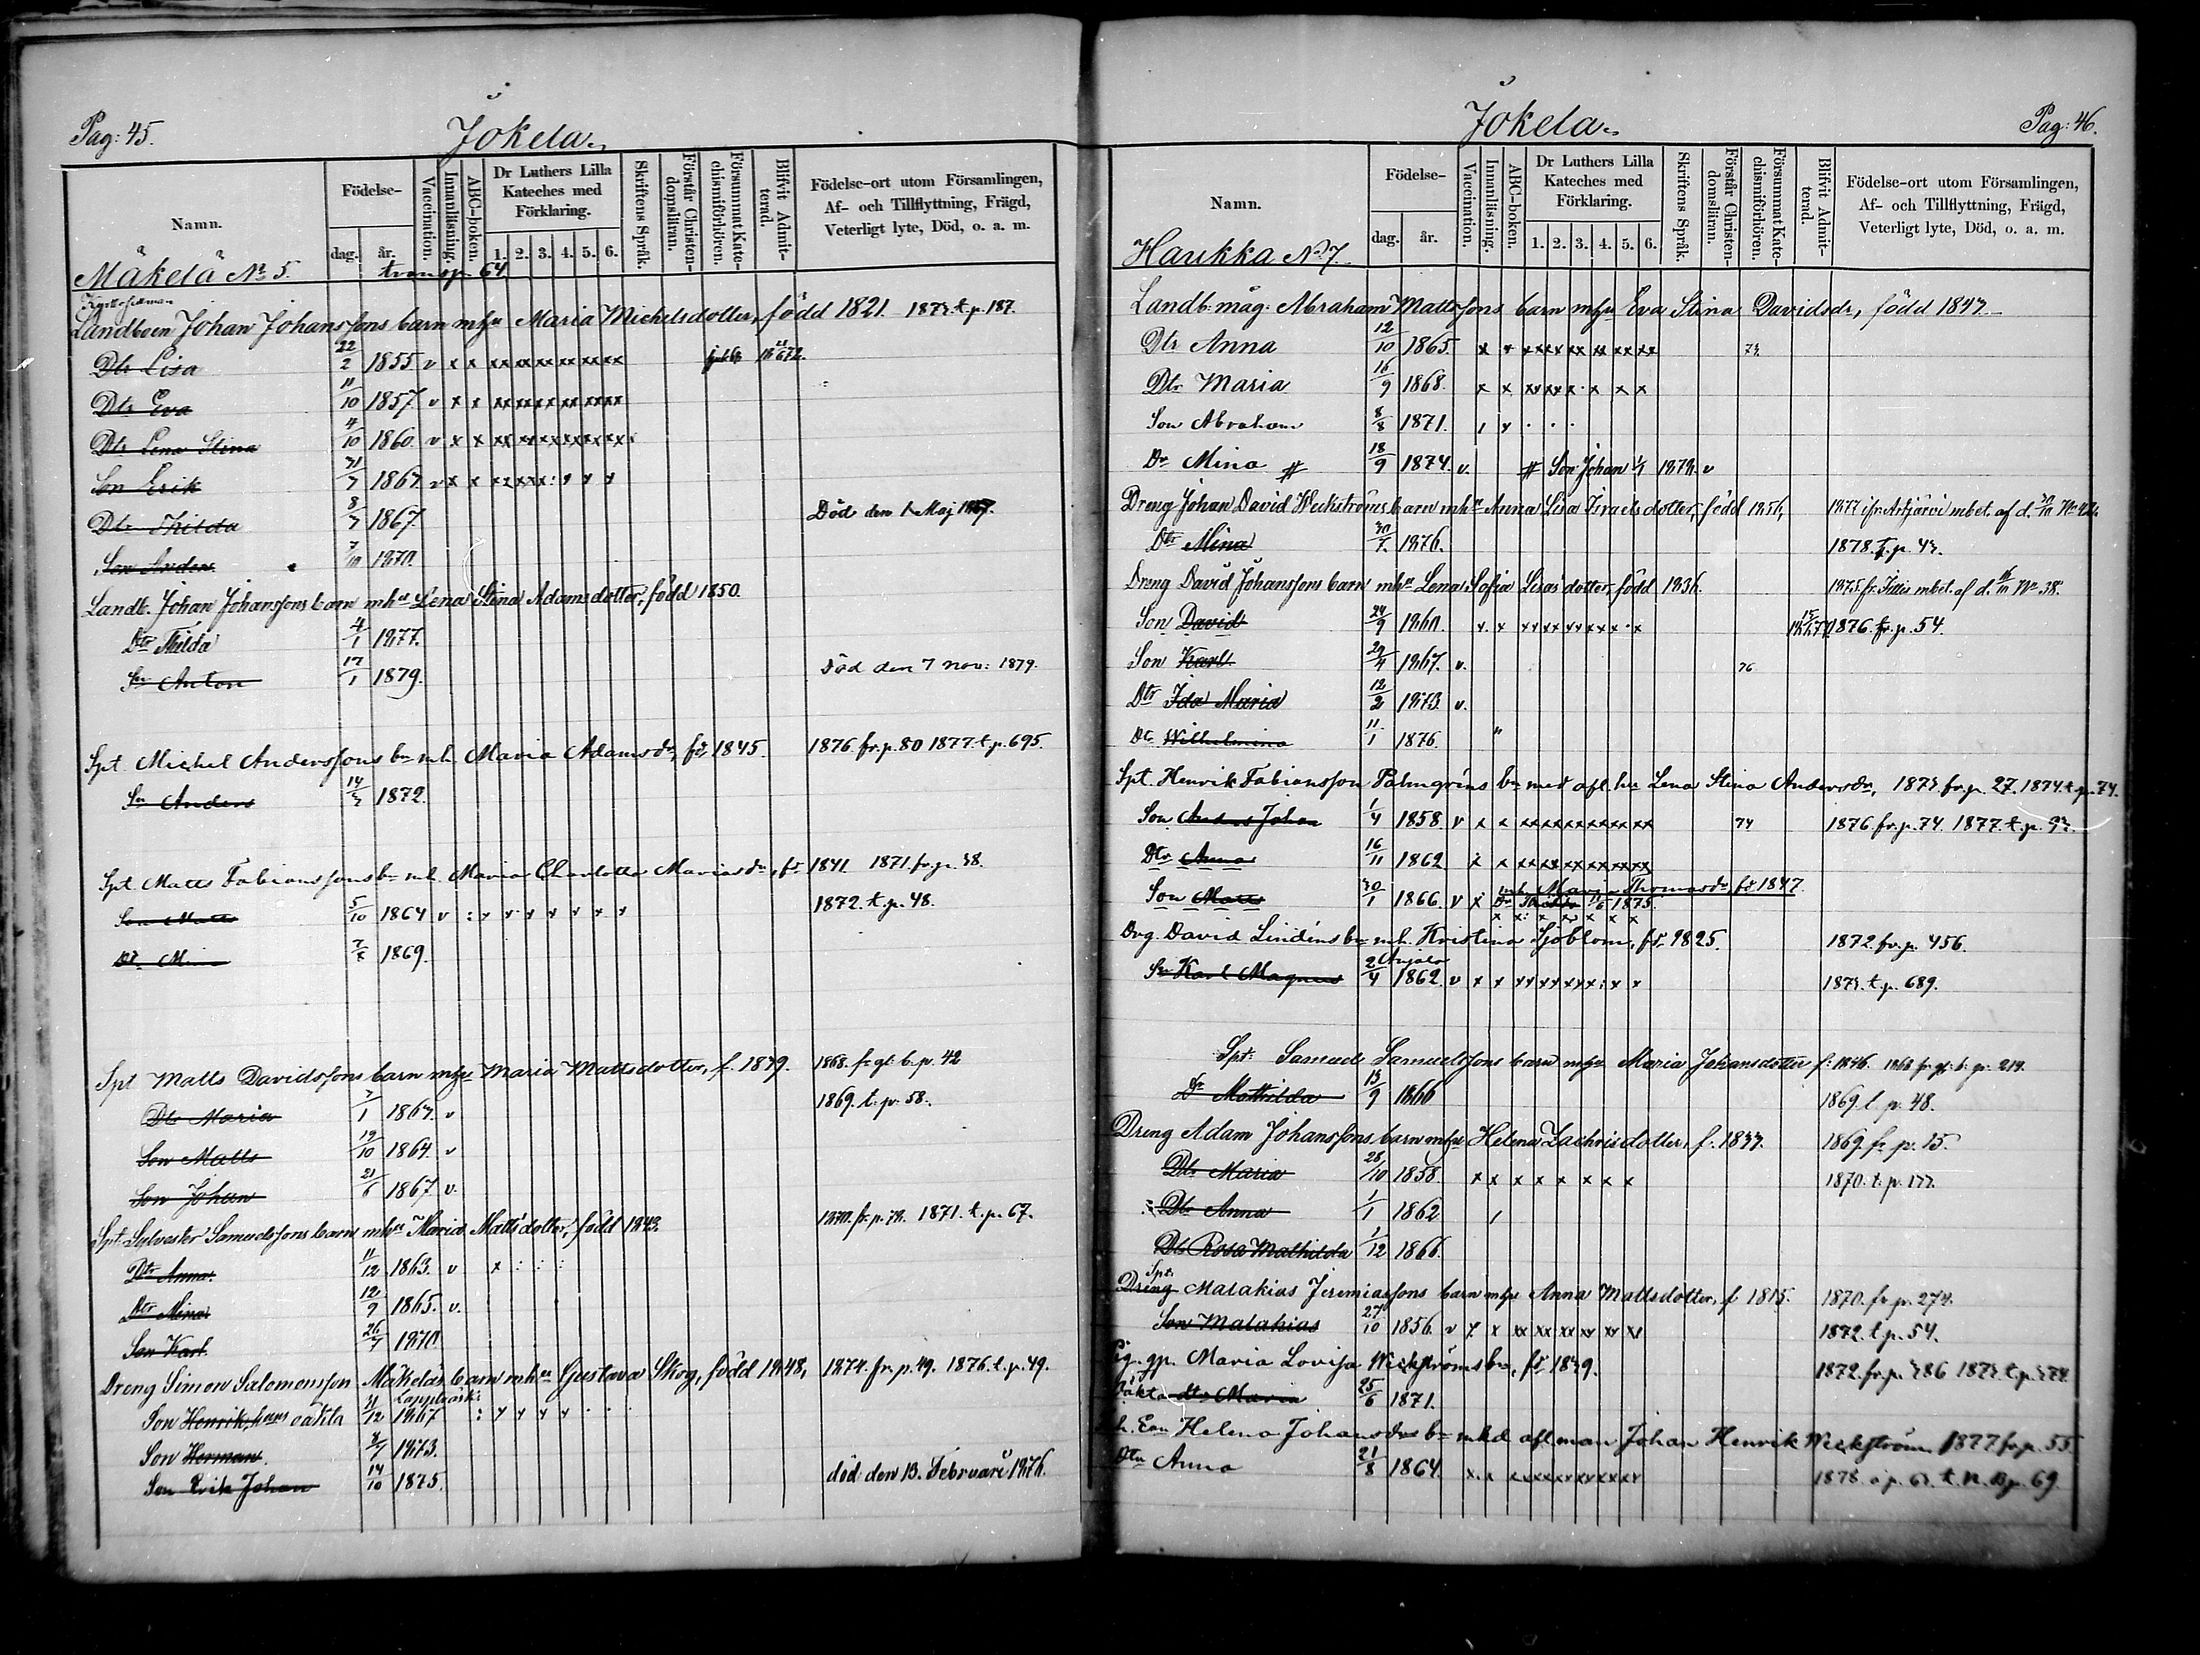 Pag: 45.
Jokela
Namn.
Födelse-
dag.
år.
Vaccination.
Innanläsning.
ABC-boken.
Dr Luthers Lilla Kateches med Förklaring.
1. 2. 3. 4. 5. 6.
Skriftens Språk.
Förstår Christendomsläran.
Försummat Katechismiförhören.
Blifvit Admitterad.
Födelse-ort utom Församlingen, Af- och Tillflyttning, Frägd, Veterligt lyte, Död, o. a. m.
Mäkelä No 5. transp. 64
Landboen Johan Johanssons barn mhu Maria Michelsdotter, född 1821. 1873 t.p. 187.
Dtr Lisa 22/2 1855 v x x
Dtr Eva 11/10 1857 v x x
Dtr Lena Stina 4/10 1860 v x x
Son Erik 1863 v x x
Dtr Thilda 1867 Död den 1 Maj 1867.
Son Anders 1870.
Landb. Johan Johanssons barn mhu Lena Stina Adamsdotter, född 1850.
Dtr Thilda 4/1 1877.
Sn Anton 17/1 1879. Död den 7 nov: 1879.
Spt. Michel Anderssons bn mh. Maria Adamsdr, fd 1845. 1876 fr.p. 80 1877 t.p. 695.
Sn Anders 14/3 1872.
Spt. Matts Fabianssons bn mh. Maria Charlotta Mariasdr, fd 1841 1871 fr.p. 38.
Son Matts 5/10 1864 v 1872. t.p. 48.
Dr 1869.
Spt Matts Davidssons barn mhu Maria Mattsdotter, f. 1839. 1868. fr gl. b. p. 42
Dtr Maria 1863. v 1869. t. p. 58.
Son Matts 19/10 1864 v
Son Johan 21/6 1867 v.
Spt. Sylvester Samuelssons barn mhu Maria Mattsdotter, född 1843. 1870. fr. p. 73. 1871. t. p. 67.
Dtr Anna. 11/12 1863. v x : : :
Dtr Mina 12/9 1865. v.
Son Karl. 1870.
Dreng Simon Salomonsson Mäkeläs barn mhu Gustava Skog, född 1848, 1874. fr. p. 49. 1876. t. p. 49.
Lappträsk:
Son Henrik, hans oäkta 1867
Son Herman. 1873.
Son Erik Johan 14/10 1875. död den 13. Februari 1876.
Pag: 46.
Jokela
Namn.
Födelse-
dag.
år.
Vaccination.
Innanläsning.
ABC-boken.
Dr Luthers Lilla Kateches med Förklaring.
1. 2. 3. 4. 5. 6.
Skriftens Språk.
Förstår Christendomsläran.
Försummat Katechismiförhören.
Blifvit Admitterad.
Födelse-ort utom Församlingen, Af- och Tillflyttning, Frägd, Veterligt lyte, Död, o. a. m.
Haukka No 7.
Landb: måg: Abraham Mattssons barn mhu Eva Stina Davidsdr, född 1843.
Dtr Anna 12/10 1865. 73
Dtr Maria 16/9 1868.
Son Abraham 8/8 1871.
Dr Mina # 18/9 1874. v. # Son Johan 1878. v
Dreng Johan David Weckströms barn mhu Anna Lisa Israelsdotter, född 1856, 1877 ifr. Artjärvi mbet. af d.
Dtr Mina 1876. 1878. t. p. 43.
Dreng David Johanssons barn mhu Lena Sofia Lisasdotter, född 1836. 1875. fr. Iittis mbet. af d. No 38.
Son David 24/9 1860. 1876. fr. p. 54.
Son Karl 29/4 1867. v. 76
Dtr Ida Maria 12/2 1873. v.
Dtr Wilhelmina 11/1 1876.
Spt. Henrik Fabiansson Palmgréns bn med afl. hu Lena Stina Andersdr, 1873 fr.p. 27. 1874 t.p. 74.
Son Anders Johan 1/4 1858. v x x 74 1876 fr.p. 74. 1877. t.p. 93.
Dtr Anna 16/11 1862
mh. Maria Thomasdr fd 1847.
Son Matts 30/1 1866. v x 1875.
Drg. David Lindéns bn mh. Kristina Sjöblom, fd. 1825. 1872 fr.p. 456.
Sn Karl Magnus 2/4 1862. v 1873. t.p. 689.
Spt. Samuel Samuelssons barn mhu Maria Johansdotter f. 1846. 1868 fr gl. b. p. 214.
Dr Mathilda 13/9 1866 1869. t. p. 48.
Dreng Adam Johanssons barn mhu Helena Zachrisdotter, f. 1837. 1869. fr p. 15.
Dtr Maria 28/10 1858. x x x x x x x x 1870. t. p. 177.
Dtr Anna 1/1 1862
Dtr Rosa Mathilda 1/12 1866.
Spt.
Dreng Malakias Jeremiassons barn mhu Anna Mattsdotter, f 1815. 1870. fr p. 274.
Son Malakias 27/10 1856. v 1872. t p. 54.
gp. Maria Lovisa Weckströms bn, fd. 1839. 1872. fr.p. 386 1873. t.p. 374.
Oäkta dtr Maria 25/6 1871.
Eva Helena Johansdrs bn med afl. man Johan Henrik Weckström 1877 fr.p. 55
Dtr Anna 21/8 1864. 1878. p. 63. t. N. B. p. 69.